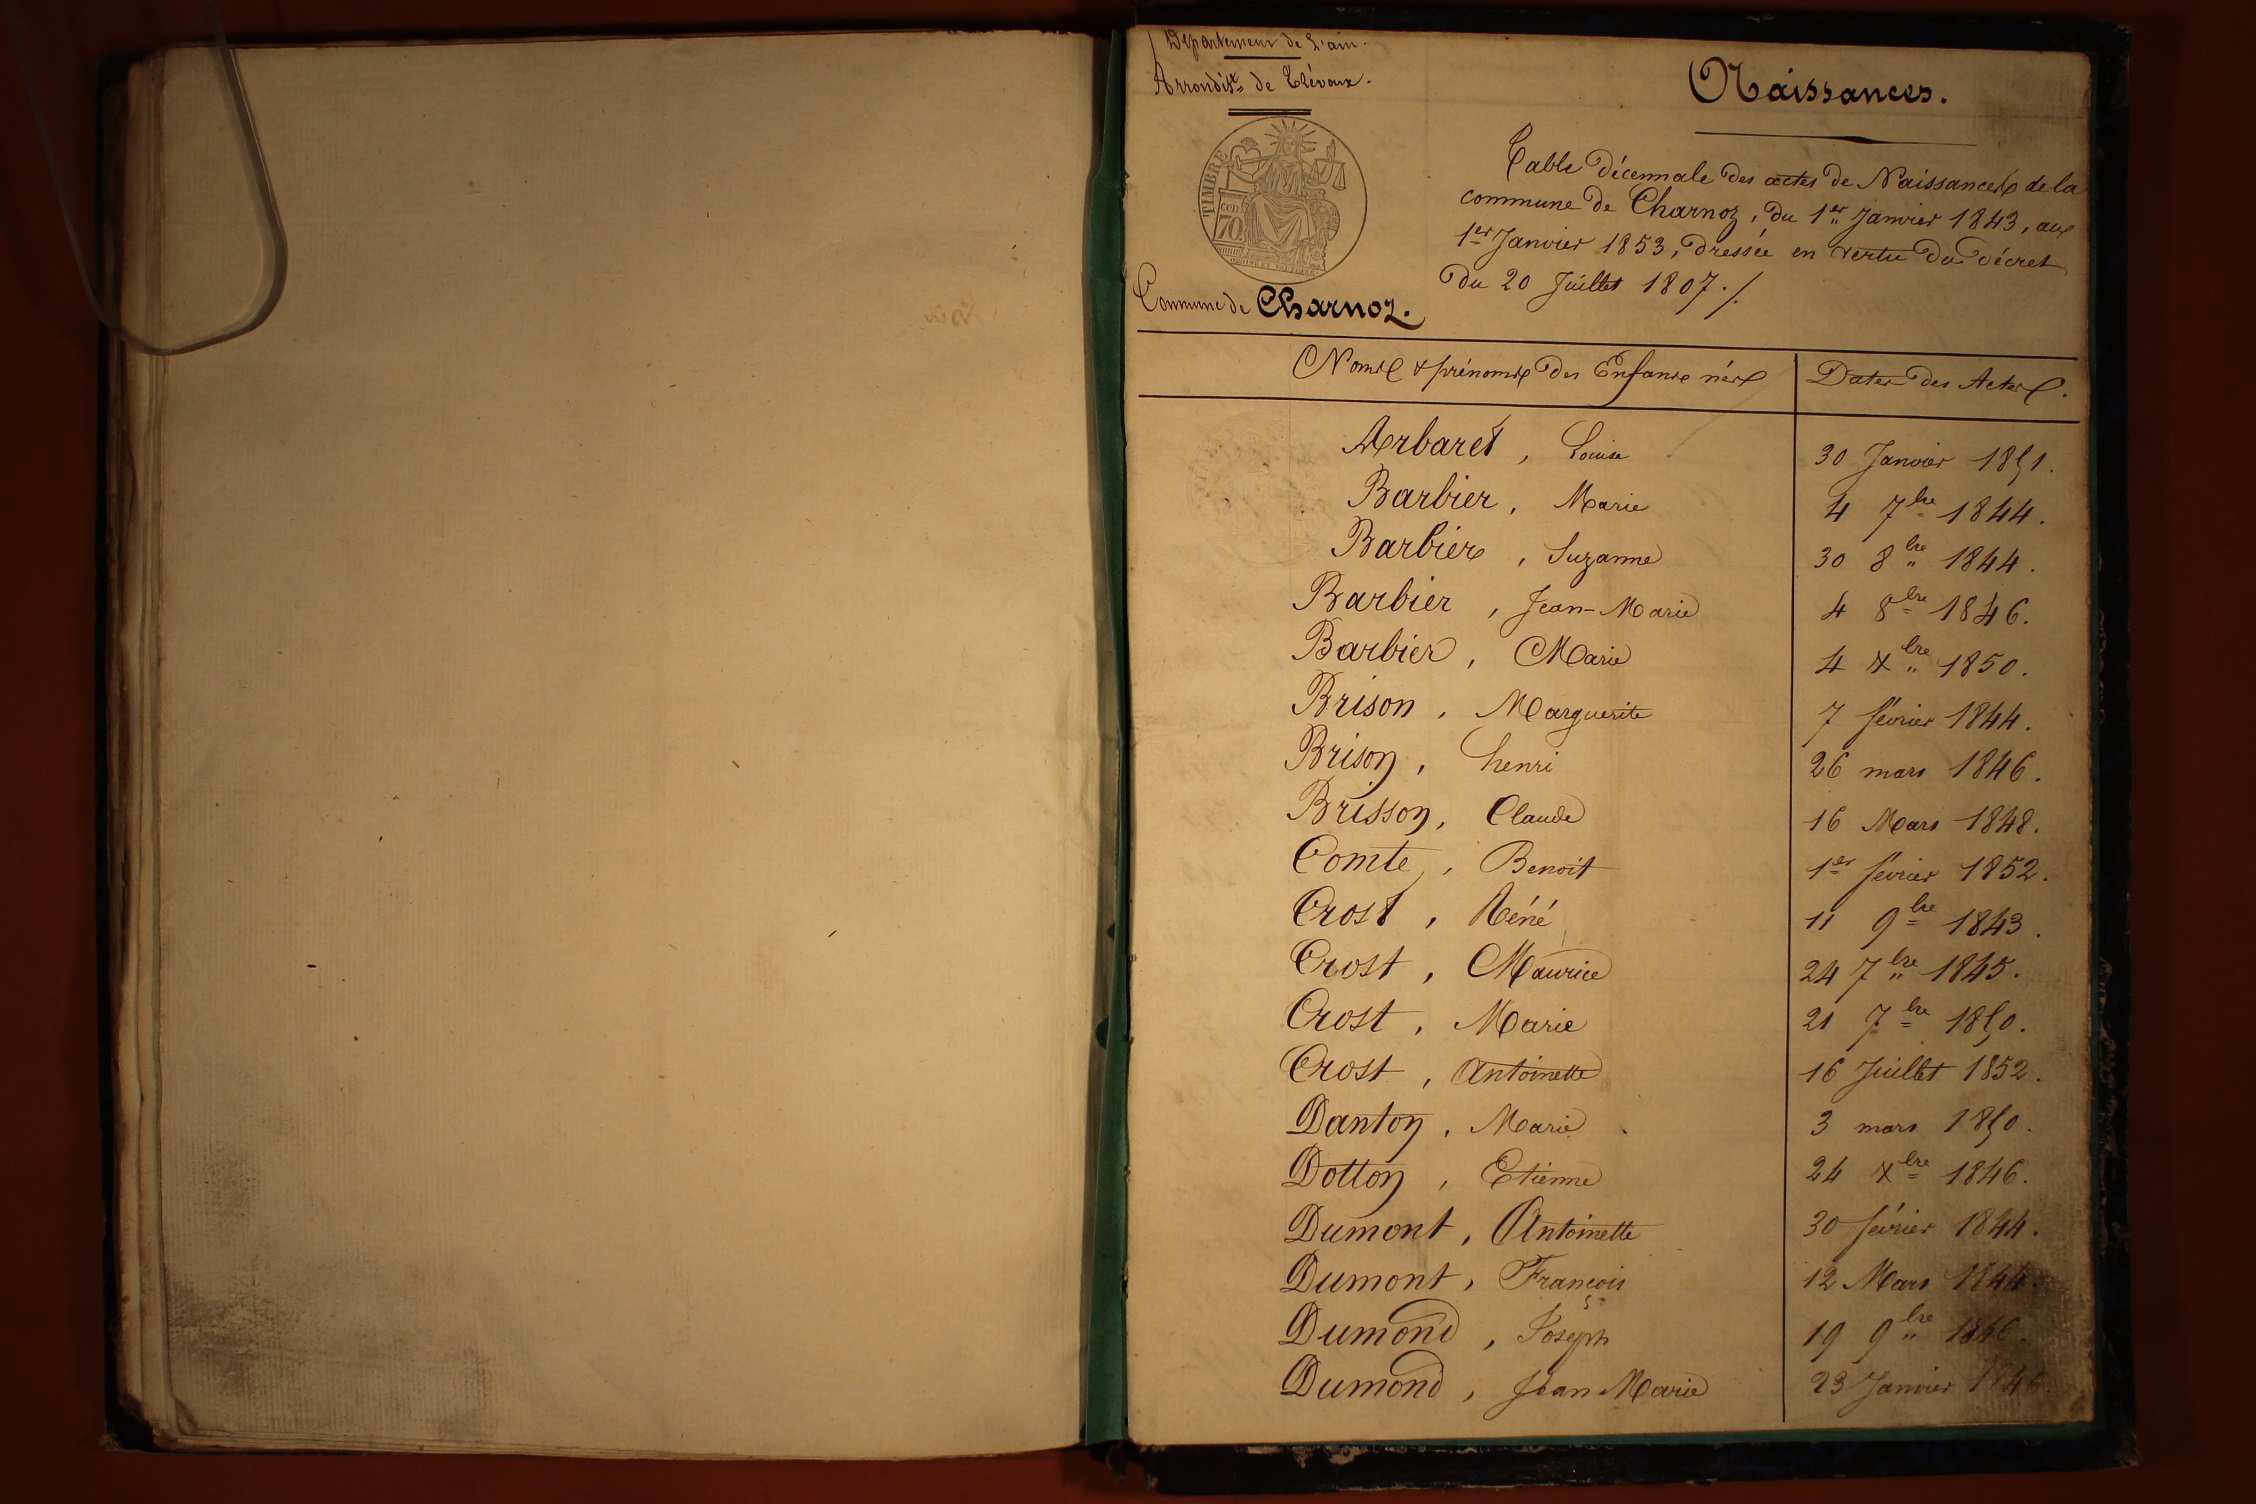 Département de L'ain.
Arrondist de Trévoux.
Naissances.
TIMBRE
cen.
70.
Table décennale des actes de Naissances de la
commune de Charnoz, du 1er Janvier 1843, au
1er Janvier 1853, dressée en vertu du décret
du 20 Juillet 1807./.
Commune de Charnoz.
Noms & prénoms des Enfants nés
Dates des Actes.
Arbaret, Louise 30 Janvier 1851.
Barbier, Marie 4 7bre 1844.
Barbier, Suzanne 30 8bre 1844.
Barbier, Jean-Marie 4 8bre 1846.
Barbier, Marie 4 Xbre 1850.
Brison, Marguerite 7 février 1844.
Brison, henri 26 mars 1846.
Brisson, Claude 16 Mars 1848.
Comte, Benoit 1er février 1852.
Crost, Réné 11 9bre 1843.
Crost, Maurice 24 7bre 1845.
Crost, Marie 21 7bre 1850.
Crost, Antoinette 16 Juillet 1852.
Danton, Marie 3 mars 1850.
Dotton, Etienne 24 Xbre 1846.
Dumont, Antoinette 30 février 1844.
Dumont, François 12 Mars 1844.
Dumond, Joseph 19 9bre 1846.
Dumond, Jean Marie 23 Janvier 1846